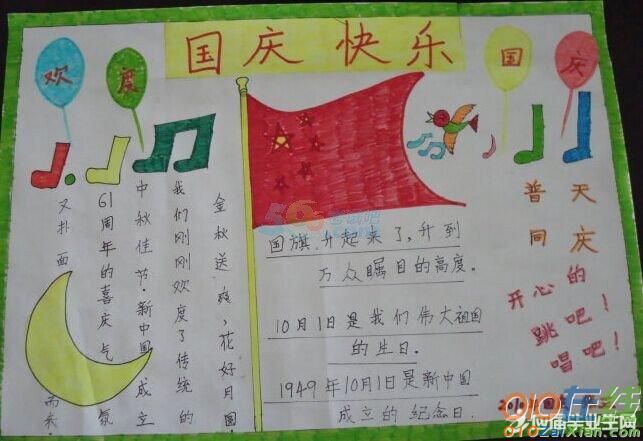 国庆快乐
欢度
国庆
金秋送爽,花好月圆。
我们刚刚欢度了传统的
中秋佳节。新中国成立
61周年的喜庆气氛
又扑面而来。
国旗升起来了,升到
万众瞩目的高度。
10月1日是我们伟大祖国
的生日。
1949年10月1日是新中国
成立的纪念日.
普天
同庆
开心的
跳吧!
唱吧!
应届毕业生网